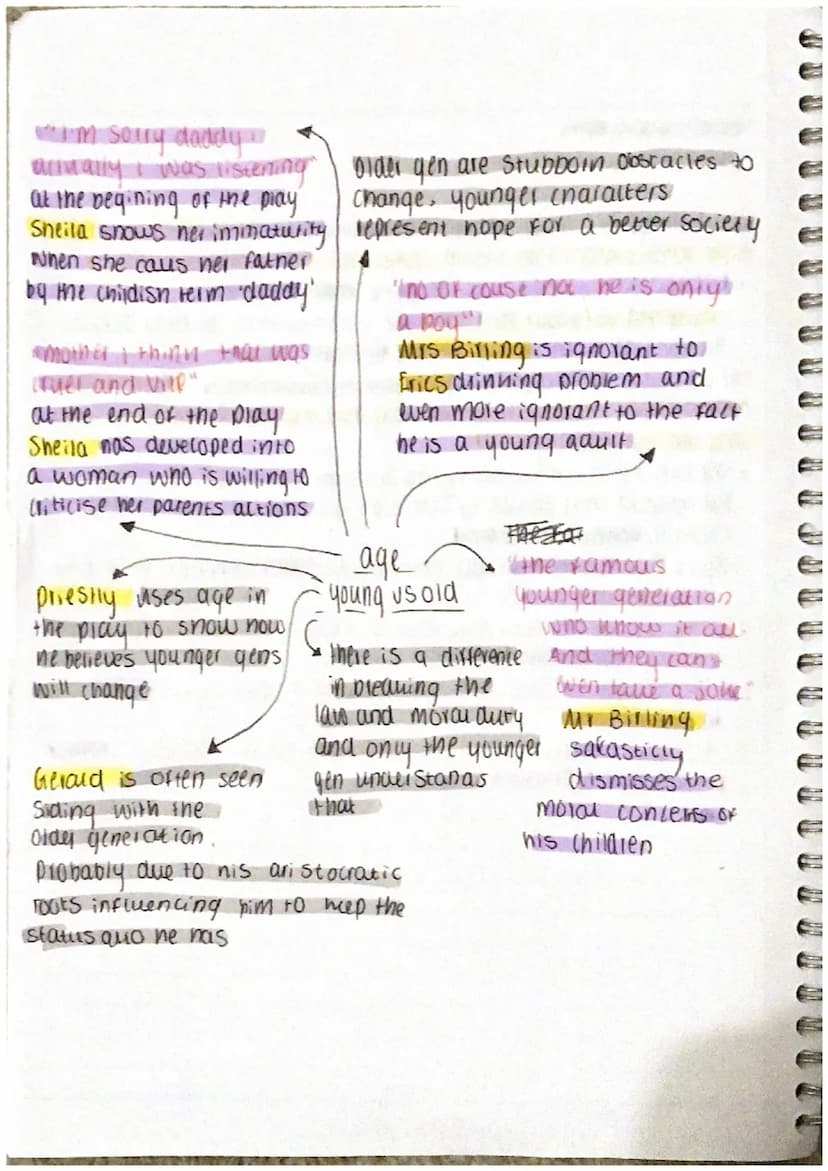 "I'm sorry daddy
actually I was listening"
at the begining of the play
Sheila shows her immaturity
when she calls her father
by the childish term 'daddy'
older gen are stubborn obstacles to
change, younger characters
represent hope for a better society
"no of couse not he is only
a boy"
Mrs Birling is ignorant to
Erics drinking problem and
even more ignorant to the fact
he is a young adult
"mother i think that was
cruel and vile"
at the end of the play
Sheila has developed into
a woman who is willing to
criticise her parents actions
age
young vs old
Priestly uses age in
the play to show how
he believes younger gens
will change
there is a difference
in breaking the
law and moral duty
and only the younger
gen understands
that
"the famous
younger generation
who know it all.
And they can't
even take a joke"
Mr Birling
sakasticly
dismisses the
moral concerns of
his children
Gerald is often seen
Siding with the
Older generation.
Probably due to his aristocratic
roots influencing him to keep the
status quo he has